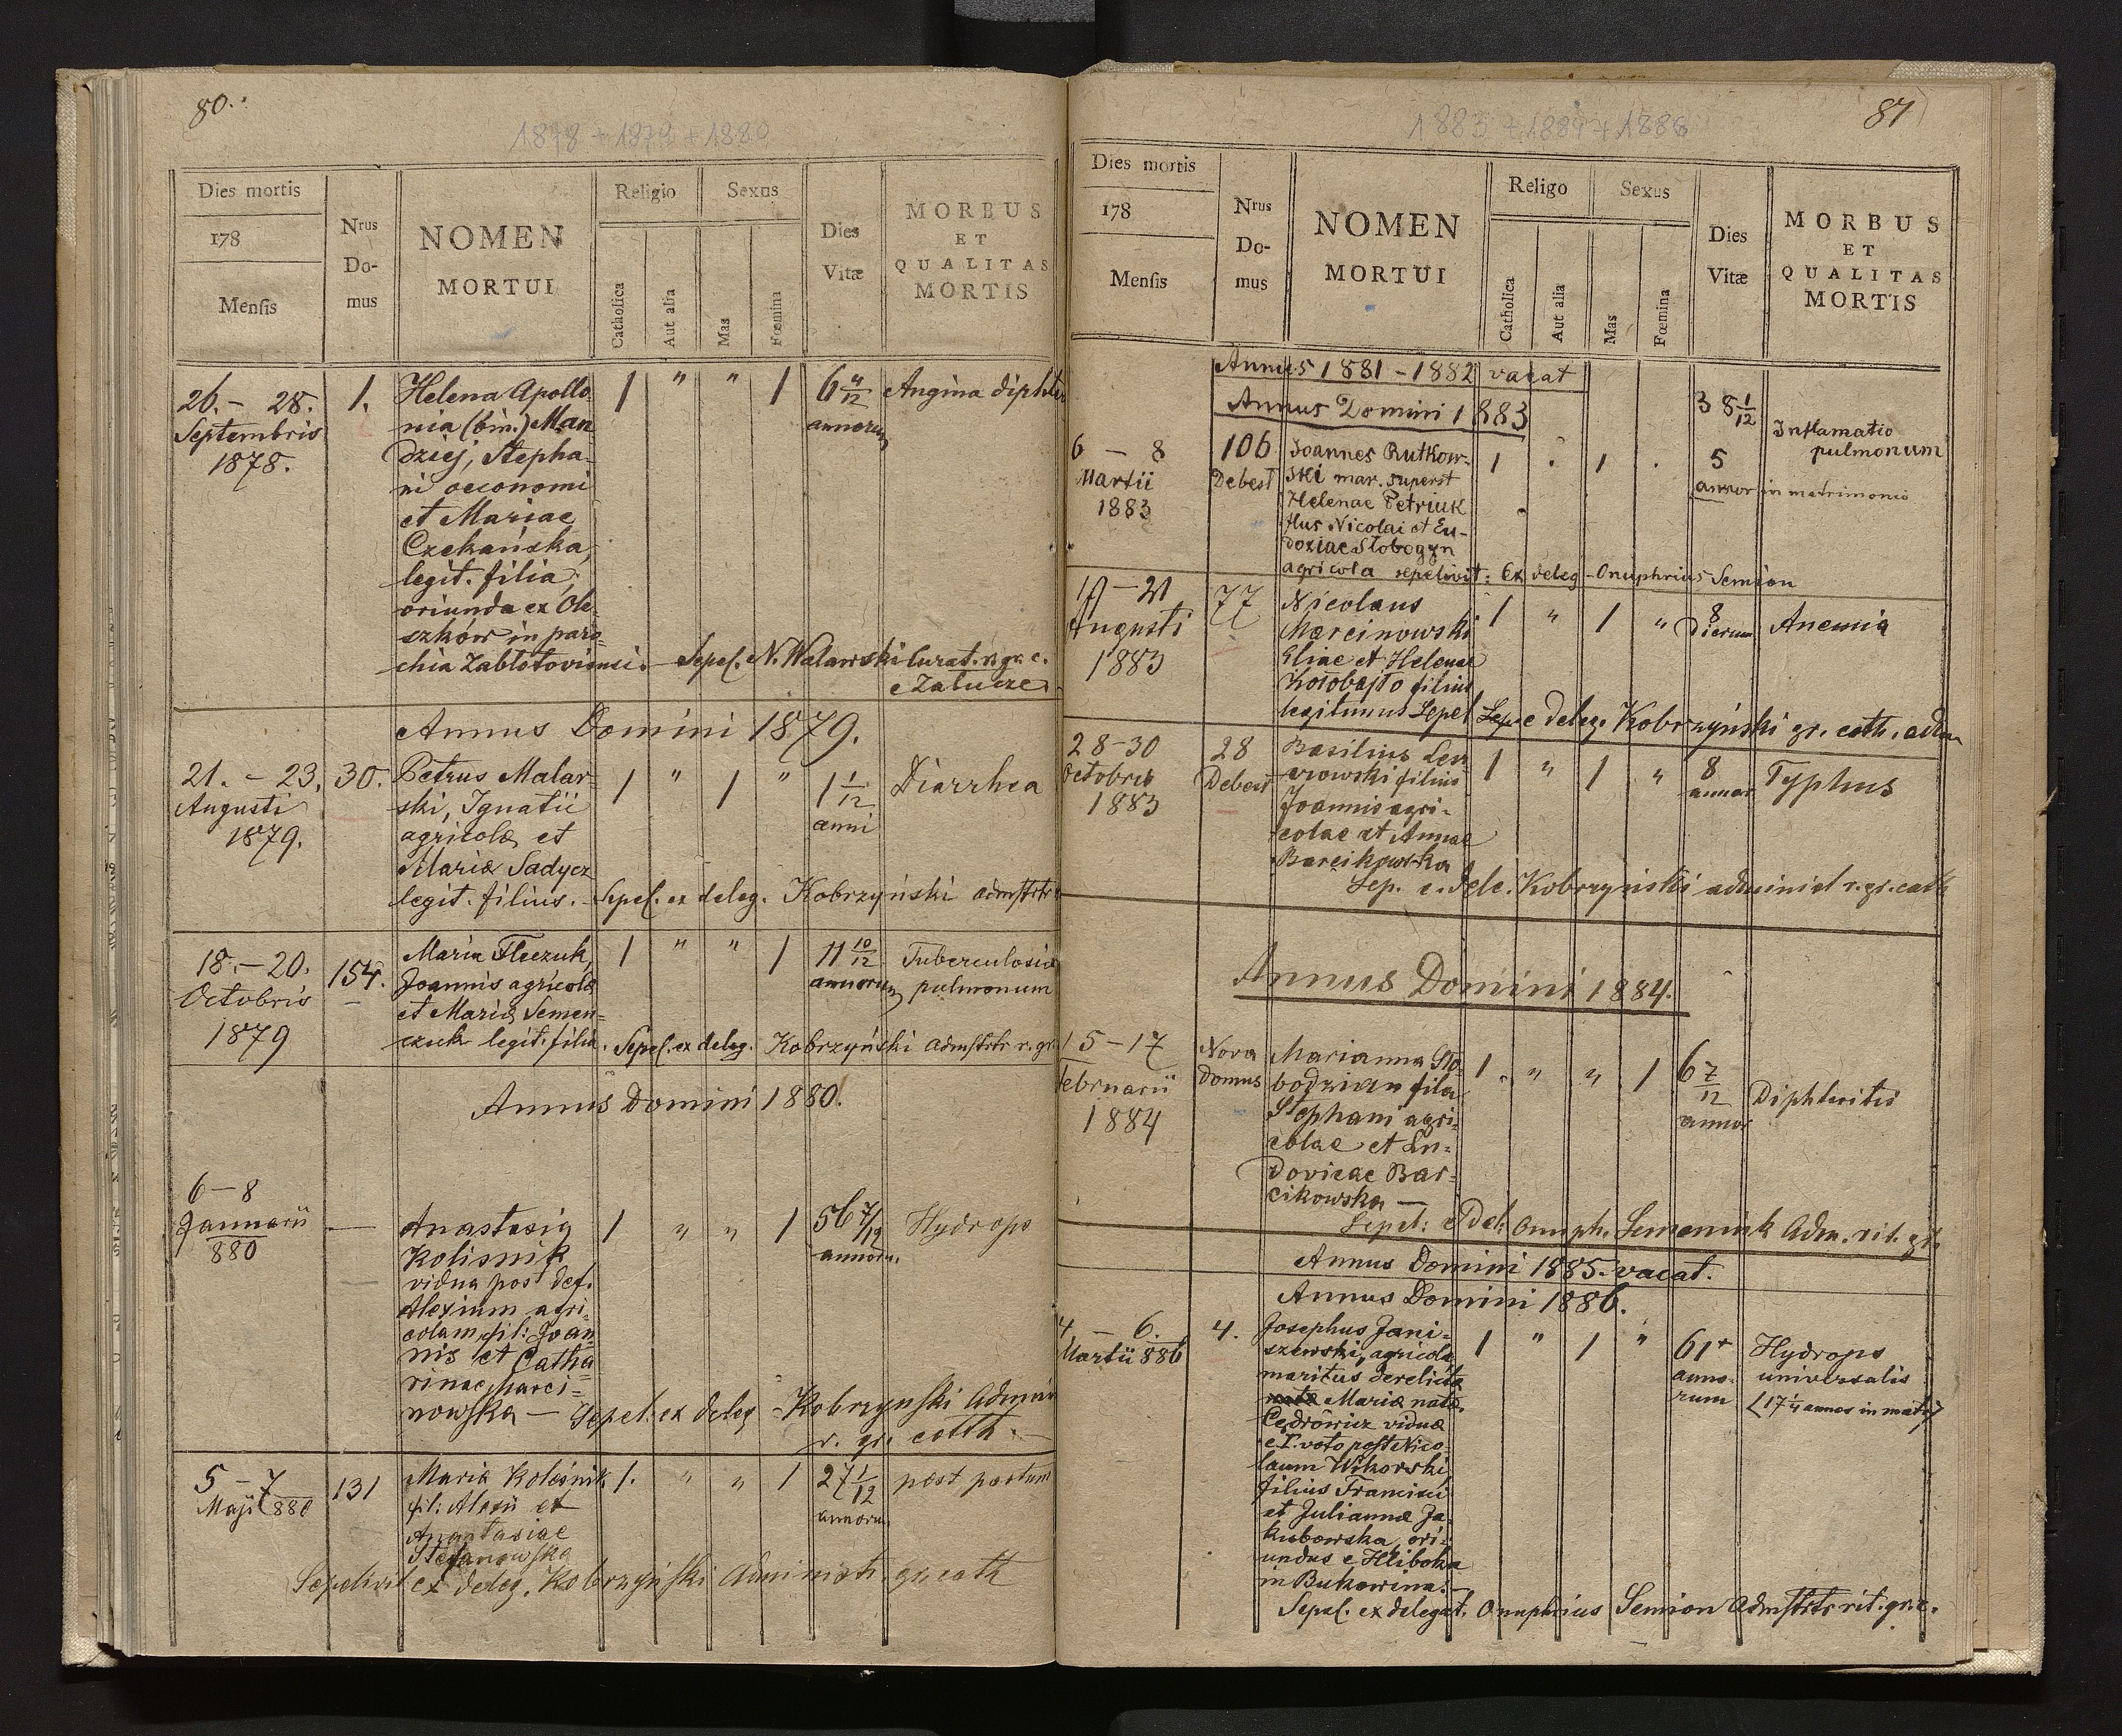 80.
1878 + 1879 + 1880
Dies mortis
178
Mensis
Nrus
Do-
mus
NOMEN
MORTUI
Religio
Catholica
Aut alia
Sexus
Mas
Fœmina
Dies
Vitæ
MORBUS
ET
QUALITAS
MORTIS
26. - 28.
Septembris
1878.
1.
Helena Apollo
nia (bin.) Man
dziej, Stepha-
ni oeconomi
et Mariae
Czekańska,
legit. filia,
oriunda ex Ole-
szków in paro-
chia Zabłotoviensi. - Sepel. N. Walawski Curat. r. gr. c.
e Załucze
1 " " 1
6 4/12
annorum
Angina diphter
Annus Domini 1879.
21. - 23.
Augusti
1879.
30.
Petrus Malar-
ski, Ignatii
agricolæ et
Mariæ Sadycz
legit. filius. - Sepel. ex deleg. Kobrzyński admstrtr
1 " 1 "
1 1/12
anni
Diarrhea
18. - 20.
Octobris
1879
154.
Maria Fleczuk,
Joannis agricolæ
et Mariæ Semen-
czuk legit. filia. Sepel. ex deleg. Kobrzyński admstrtr r. gr.
1 " " 1
11 10/12
annorum
Tuberculosis
pulmonum
Annus Domini 1880.
6 - 8
Januarii
880
—
Anastasia
Kolisnik
vidua post def.
Alexium agri-
colam, fil: Joan-
nis et Catha
rinae Marci-
nowska — Sepel. ex deleg - Kobrzyński Admin
r. gr. cath. —
1 " " 1
56 7/12
annoru.
Hydrops
5 - 7
Maji 880
131
Maria Koleśnik
fil: Alexii et
Anastasiae
Stefanowska
Sepelivit ex deleg. Kobrzyński Administ. gr. cath
1. " " 1
27 1/12
annoru
post partum
87
1883 + 1884 + 1886
Dies mortis
178
Mensis
Nrus
Do-
mus
NOMEN
MORTUI
Religo
Catholica
Aut alia
Sexus
Mas
Fœmina
Dies
Vitæ
MORBUS
ET
QUALITAS
MORTIS
Annus 1881 - 1882 vacat
Annus Domini 1883
6 - 8
Martii
1883
106
Debest
Joannes Rutkow-
ski mar. superst
Helenae Petriuk
flus Nicolai et Eu-
doxiae Słobogyn
agricola sepelivit: Ex deleg - Onuphrius Semion
1 . 1 .
38 1/12
5
annor in matrimonio
Inflamatio
pulmonum
19 - 21
Augusti
1883
77
Nicolaus
Marcinowski
Eliae et Helenae
Kołobajło filius
legitimus Sepel Sep. e deleg. Kobrzyński gr. cath. adm
1 " 1 "
8
Dierum
Anemia
28-30
Octobris
1883
28
Debest
Basilius Lew
rowski filius
Joannis agri-
colae et Annae
Barcikowska
Sep. e. dele. Kobrzyński administ r. gr. cath
1 " 1 "
8
annor
Typhus
Annus Domini 1884.
15 - 17
Februarii
1884
Nova
Domus
Marianna Sło-
bodzian filia
Stephani agri-
colae et Lu-
dovicae Bar-
cikowska —
Sepel: e Del: Onuph. Semeniuk Adm. rit. gr.
1 " " 1
6 7/12
annor
Diphteritis
Annus Domini 1885. vacat.
Annus Domini 1886.
4 - 6.
Martii 886
4.
Josephus Jani-
szewski, agricola
maritus derelictæ
Mariæ natæ
Cedrowicz viduæ
e I. voto post Nico-
laum Wikorski
filius Francisci
et Juliannæ Ja-
kubowska, ori-
undus e Hliboka
in Bukowina. -
Sepel. ex delegat. Onuphrius Semion Admstrtr rit. gr. c.
1 " 1 "
61+
anno-
rum
Hydrops
universalis
(17 1/4 annos in matr)